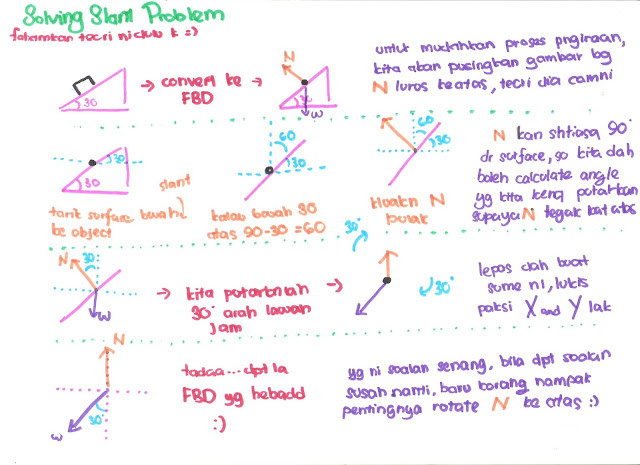 Solving Slant Problem
fahamkan teori ni dulu k =)
30
→ convert ke →
FBD
N
30
W
untuk mudahkan proses pngiraan,
kita akan pusingkan gambar bg
N lurus keatas, teori dia camni
30
30
slant
tarik surface bawah
ke object
60
30
kalau bawah 30
atas 90-30 = 60
60
30
N
pulak
N kan shtiasa 90°
dr surface, so kita dah
boleh calculate angle
yg kita kena putarkan
supaya N tegak kat atas
N
30°
W
→ kita putarkanlah →
30° arah lawan
jam
30°
30°
lepas dah buat
sume ni, lukis
paksi X and Y lak
N
W
30°
tadaa... dpt la
FBD yg hebadd
:)
yg ni soalan senang, bila dpt soalan
susah nanti, baru korang nampak
pentingnya rotate N ke atas :)